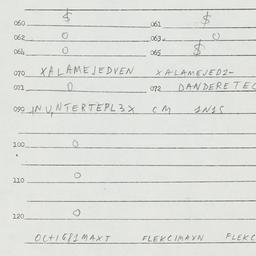 $ $
060 061
062 0 063 0
064 0 065 $
070 XALAMEJEDVEN XALAMEJED2-
071 0 072 DANDERETEC
090 INUNTERTEPL3X CM 1N1S
100 0
110 0
120 0
OCT1681MAXT FLEKCIMAXN FLEKC